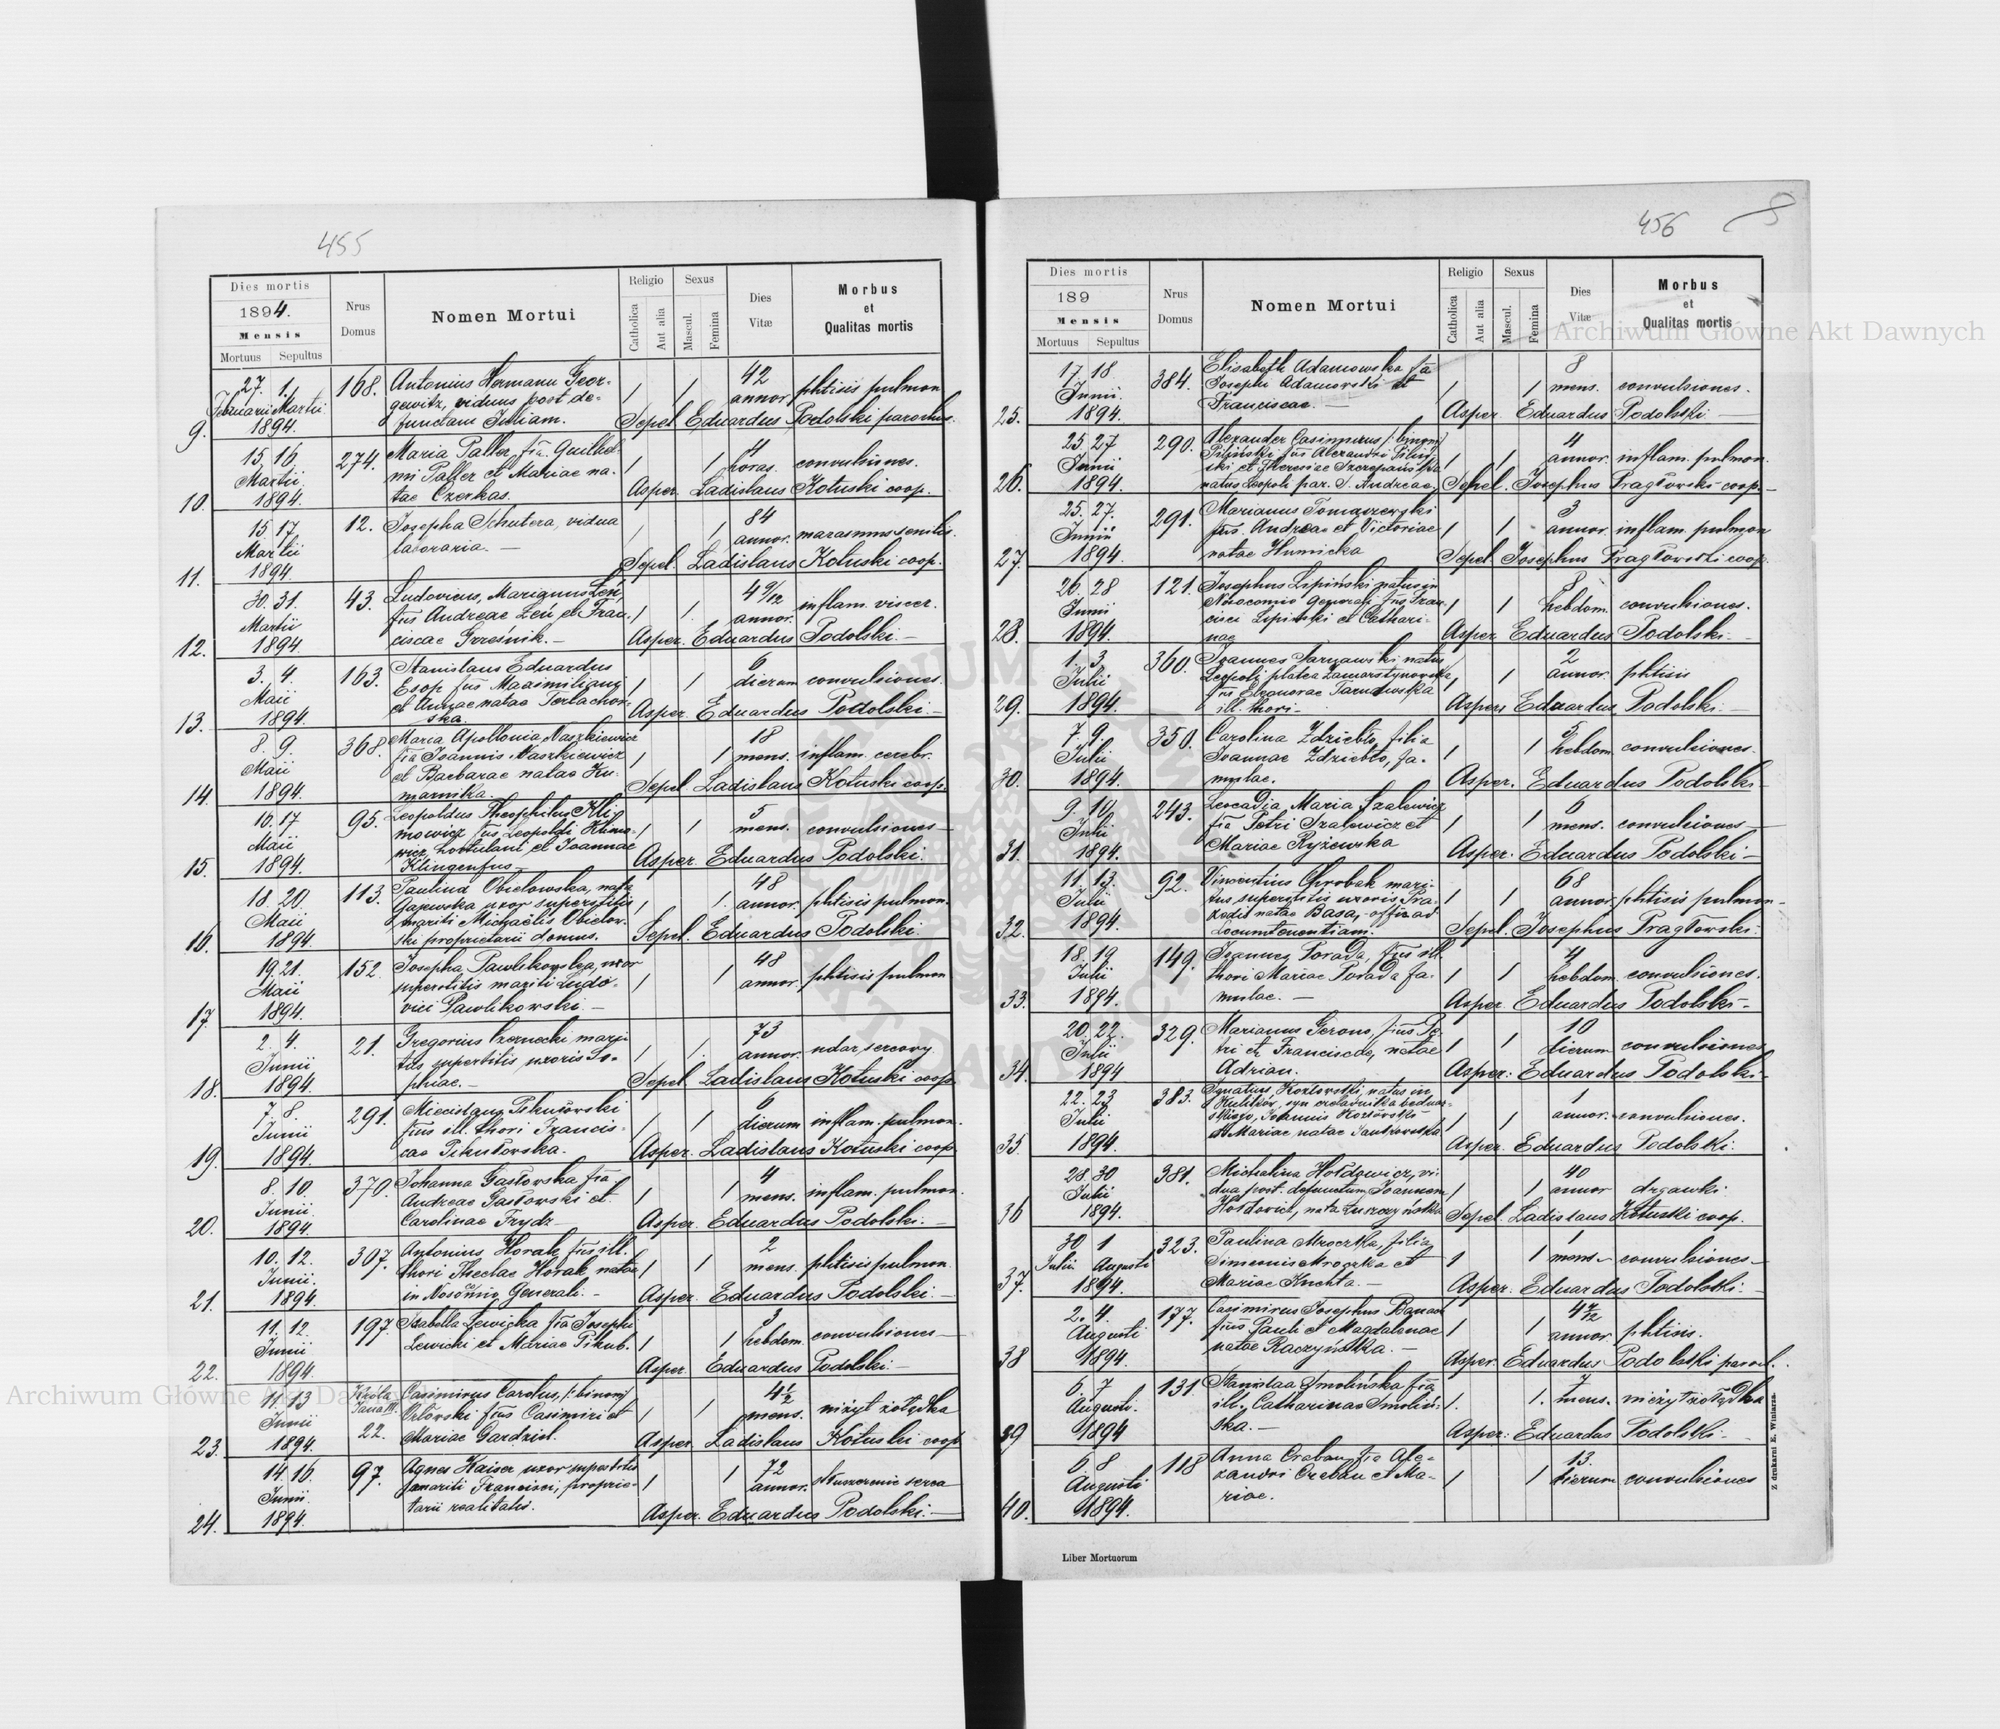 455
Dies mortis
1894.
Mensis
Mortuus Sepultus
Nrus
Domus
Nomen Mortui
Religio
Catholica
Aut alia
Sexus
Mascul.
Femina
Dies
Vitæ
Morbus
et
Qualitas mortis
27. 1. 168. Antonius Hermann Geor- 42
Februarii Martii gewitz, viduus post de- annor. phtisis pulmon.
9. 1894. functam Juliam. Sepel. Eduardus Podolski parochus.
15. 16. 274. Maria Paller, fia. Guilhel- 4
Martii mi Paller et Mariae na- horas. convulsiones.
10 1894. tae Czerkas. Asper. Ladislaus Kotuski coop.
15. 17 12. Josepha Schutera, vidua 84
Martii laboraria. — annor. marasmus senilis.
11. 1894. Sepel. Ladislaus Kotuski coop.
30. 31. 43. Ludovicus, Marianus Leń, 4 9/12
Martii fius Andreae Leń et Fran- annor. inflam. viscer.
12. 1894. ciscae Grześnik. — Asper. Eduardus Podolski. —
3. 4. 163. Stanislaus Eduardus 6
Maii Esop fius Maximiliani dierum convulsiones.
13. 1894. et Annae natae Asper. Eduardus Podolski —
ska.
8. 9. 368. Maria Apollonia Naszkiewicz 18
Maii fia Joannis Naszkiewicz mens. inflam. cerebr.
14. 1894. et Barbarae natae Ku- Sepel. Ladislaus Kotuski coop.
marnika.
16. 17 95. Leopoldus Theophilus Kli- 5
Maii mowicz fius Leopoldi Klimo- mens. convulsiones —
15. 1894. wicz hortulani et Joannae Asper. Eduardus Podolski.
Klingenfus
18. 20. 113. Paulina Obielowska, nata 48
Maii Gajewska uxor superstitis annor. phtisis pulmon.
16. 1894. mariti Michaëlis Obielow- Sepel. Eduardus Podolski.
ski proprietarii domus.
19. 21. 152. Josepha Pawlikowska, uxor 48
Maii superstitis mariti Ludo- annor. phtisis pulmon
17 1894. vici Pawlikowski. —
2. 4. 21. Gregorius Czernecki mari- 73
Junii tus superstitis uxoris So- annor. udar sercowy
18. 1894. phiae. — Sepel. Ladislaus Kotuski coop.
7. 8. 291. Miecislaus 6
Junii fius ill. thori Francis- dierum inflam. pulmon.
19. 1894. cae Asper. Ladislaus Kotuski coop.
8. 10. 370. Johanna Gastowska fia 4
Junii. Andreae Gastowski et mens. inflam. pulmon.
20. 1894. Carolinae Frydr Asper. Eduardus Podolski. —
10. 12. 307. Antonius Horak fius ill. 2
Junii. thori Theclae Horak natae mens. phtisis pulmon.
21. 1894. in Nosocomio Generali. — Asper. Eduardus Podolski. —
11. 12. 197. Isabella Lewicka fia Josephi 3
Junii Lewicki et Mariae Pikub. hebdom. convulsiones —
22. 1894. Asper. Eduardus Podolski. —
11. 13 Króla Jana III. Casimirus Carolus, (: binom.) 4 1/2
Junii Orłowski fius Casimiri et mens. nieżyt żołądka
23. 1894. 22. Mariae Gardziel. Asper. Ladislaus Kotuski coop
14. 16. 97. Agnes Kaiser uxor superstitis 72
Junii. mariti Francisci, proprie- annor. stłuszczenie serca
24. 1894. tarii realitatis. Asper. Eduardus Podolski. —
456
Dies mortis
189
Mensis
Mortuus Sepultus
Nrus
Domus
Nomen Mortui
Religio
Catholica
Aut alia
Sexus
Mascul.
Femina
Dies
Vitæ
Morbus
et
Qualitas mortis
17. 18 384. Elisabeth Adamowska fia 8
Junii. Josephi Adamowski et mens. convulsiones.
25. 1894. Franciscae. — Asper. Eduardus Podolski —
25. 27 290. Alexander Casimirus (: binom.) 4
Junii Piliński fius Alexandri Piliń- annor. inflam. pulmon.
26. 1894. ski et Theresiae Szczepańska
natus Leopoli par. S. Andreae, Sepel. Josephus Pragłowski coop. —
25. 27. 291. Marianus Tomaszewski 3
Junii fius Andreae et Victoriae annor inflam. pulmon
27. 1894. natae Humicka Sepel Josephus Pragłowski coop.
26. 28 121. Josephus Lipiński natus in 8
Junii Nosocomio Generali fius Fran- hebdom. convulsiones.
28. 1894. cisci Lipiński et Cathari- Asper. Eduardus Podolski. —
nae
1. 3. 360. Joannes natus 2
Julii Leopoli platea Zamarstynowska annor. phtisis
29. 1894. fius Eleonorae Asper. Eduardus Podolski. —
ill. thori. —
7. 9. 350. Carolina Zdziebło, filia 5
Julii Joannae Zdziebło, fa- hebdom. convulsiones.
30. 1894. mulae. Asper. Eduardus Podolski —
9. 10. 243. Leocadia Maria Szalewicz 6
Julii fia Petri Szalewicz et mens. convulsiones —
31. 1894. Mariae Ryżewska Asper. Eduardus Podolski —
11. 13. 92. Vincentius Chrobak mari- 68
Julii tus superstitis uxoris Pra- annor. phtisis pulmon —
32. 1894. xedis natae Basa, offic. ad Sepel. Josephus Pragłowski.
Locumtenentiam.
18. 19 149. Joannes Porada, fius ill. 4
Julii thori Mariae Porada fa- hebdom. convulsiones.
33. 1894. mulae. — Asper. Eduardus Podolski —
20. 22. 329. Marianus Gerono, fius Pe- 10
Julii tri et Franciscae, natae dierum convulsiones
34. 1894 Adrian. Asper: Eduardus Podolski —
22. 23 383. Ignatius Kozłowski, natus in 1
Julii Kulików, syn czeladnika bednar- annor. convulsiones.
35. 1894. skiego, Joannis Kozłowski
et Mariae natae Asper. Eduardus Podolski.
28. 30 381. Michalina Hołdowicz, vi- 40
Julii dua post. defunctum Joannem annor drgawki
36 1894. Hołdowicz, nata Łuszczyńska Sepel. Ladislaus Kotuski coop.
30 1 323. Paulina Mroczka, filia 1
Julii Augusti Simeonis Mroczka et mens — convulsiones —
37. 1894. Mariae Kuchta. — Asper. Eduardus Podolski. —
2. 4. 177. Casimirus Josephus Banaś
Augusti fius Pauli et Magdalenae annor. phtisis.
38 1894. natae Raczyńska. — Asper. Eduardus Podolski paroch.
6. 7 131. Stanislaa Smolińska fia 7
Augusti. ill., Catharinae Smoliń- mens. nieżyt żołądka
39 1894 ska. — Asper: Eduardus Podolski. —
6. 8 118 Anna Creban fia Ale- 13.
Augusti xandri Creban et Ma- dierum convulsiones
40. 1894. riae.
Liber Mortuorum
Z drukarni E. Winiarza.
Archiwum Główne Akt Dawnych
Archiwum Główne Akt Dawnych